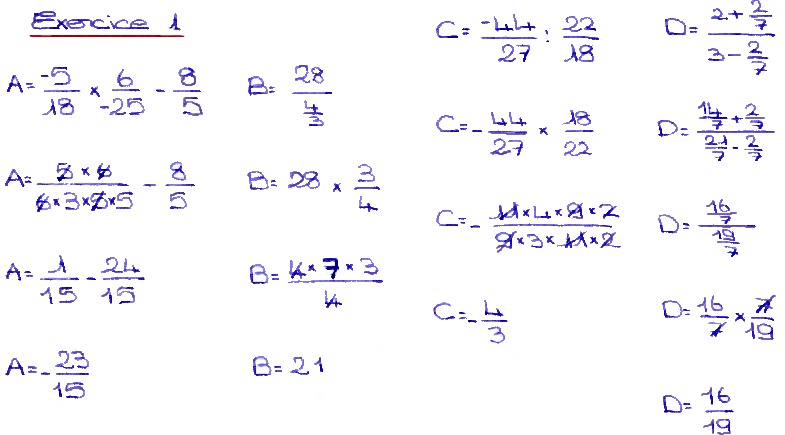 Exercice 1
A = -5/18 × 6/-25 - 8/5
A = 5 × 6 / 6×3×5×5 - 8/5
A = 1/15 - 24/15
A = - 23/15
B = 28 / (4/3)
B = 28 × 3/4
B = 4 × 7 × 3 / 4
B = 21
C = -44/27 : 22/18
C = - 44/27 × 18/22
C = - 11×4×9×2 / 9×3×11×2
C = - 4/3
D = (2 + 2/7) / (3 - 2/7)
D = (14/7 + 2/7) / (21/7 - 2/7)
D = (16/7) / (19/7)
D = 16/7 × 7/19
D = 16/19